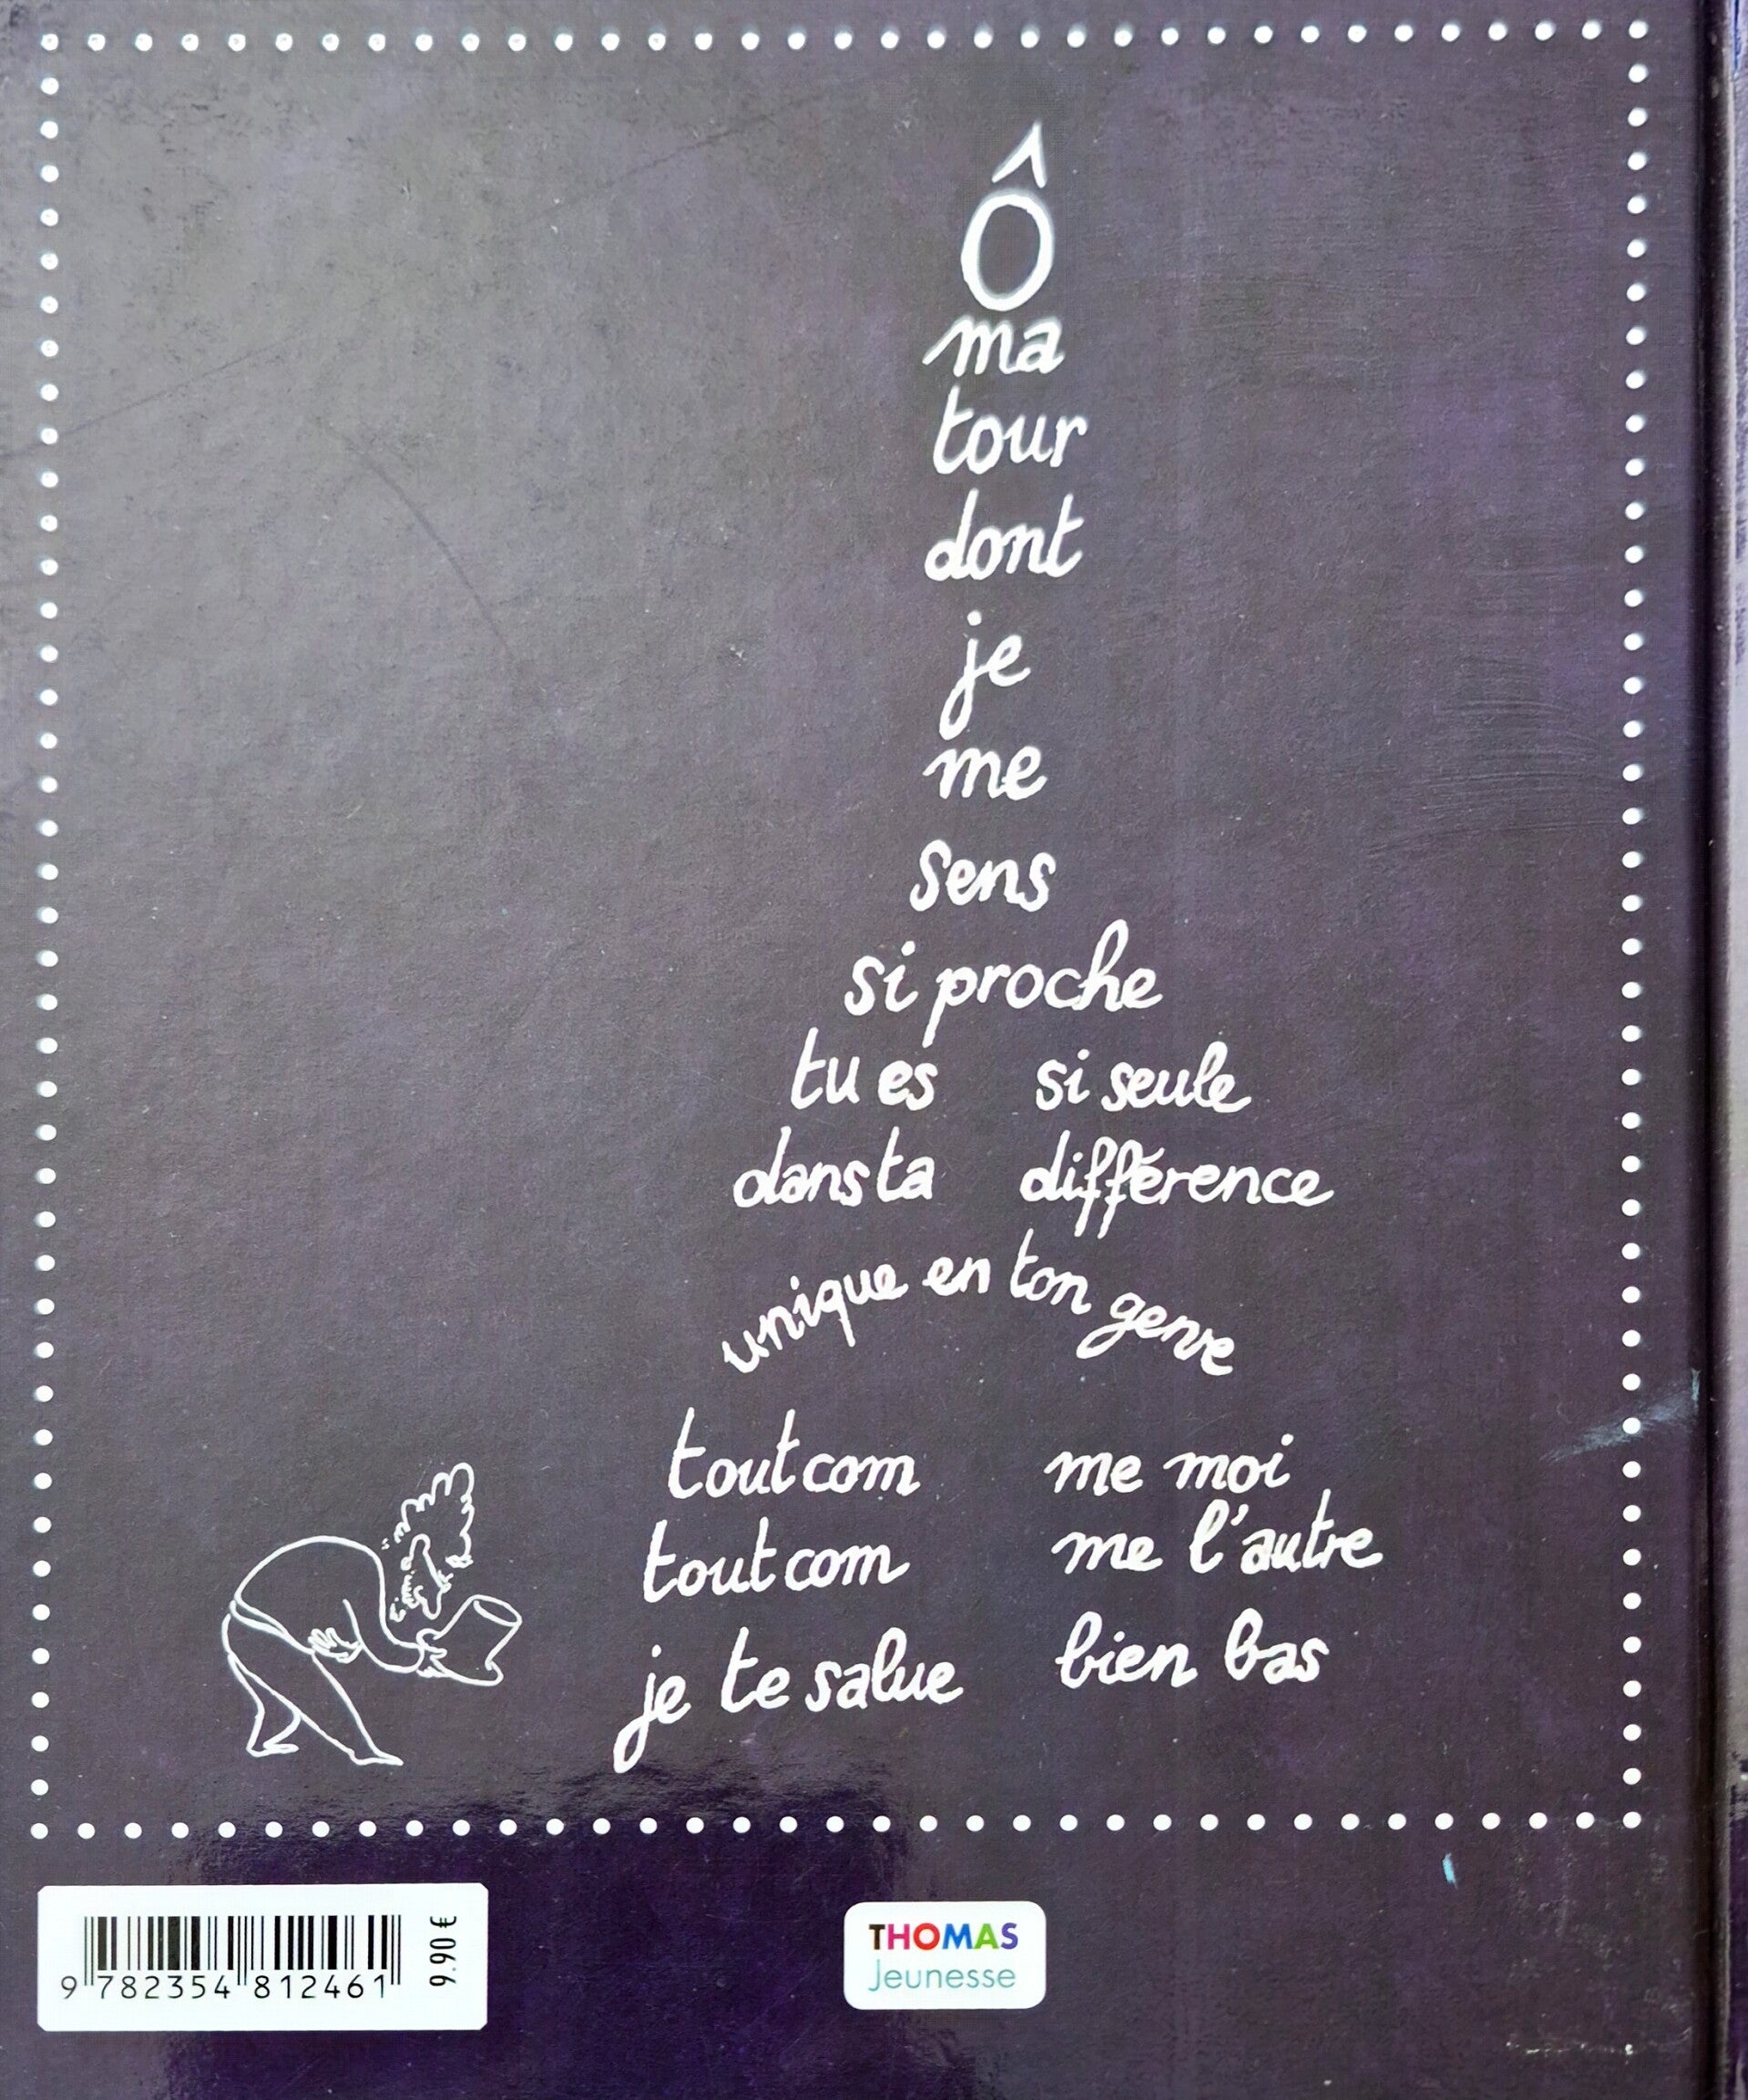 Ô
ma
tour
dont
je
me
sens
si proche
tu es si seule
dans ta différence
unique en ton genre
tout com me moi
tout com me l'autre
je te salue bien bas
9 782354 812461
9.90 €
THOMAS
Jeunesse